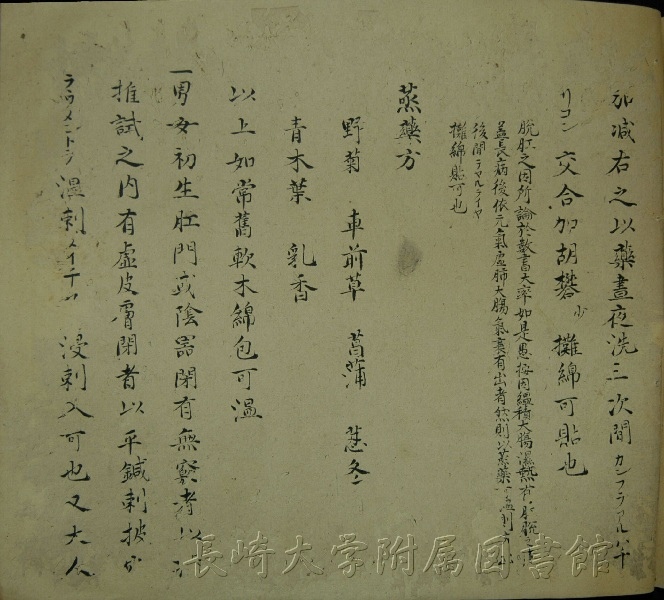 加減右之以藥晝夜洗三次間カンフラアル
リコン 交合加胡礬少 攤綿可貼也
脱肛之因所論於數書大率如是愚按因纏積大腸濕熱有肛脱
蓋長病後依元氣虚肺大腸氣裏有出者然則以蒸藥
後間ラマルライヤ
攤綿貼可也
蒸藥方
野菊 車前草 菖蒲 葱冬
青木葉 乳香
以上如常舊軟木綿包可温
一男女初生肛門或陰器閉有無竅者以
推試之内有虚皮膚閉者以平鍼刺披
ラウメントヲ温刺メイチヤ 浸刺入可也又大人
長崎大学附属図書館